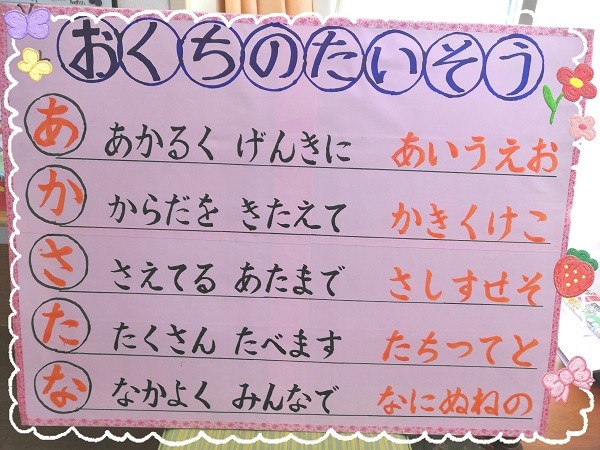 おくちのたいそう
あ あかるく げんきに あいうえお
か からだを きたえて かきくけこ
さ さえてる あたまで さしすせそ
た たくさん たべます たちつてと
な なかよく みんなで なにぬねの